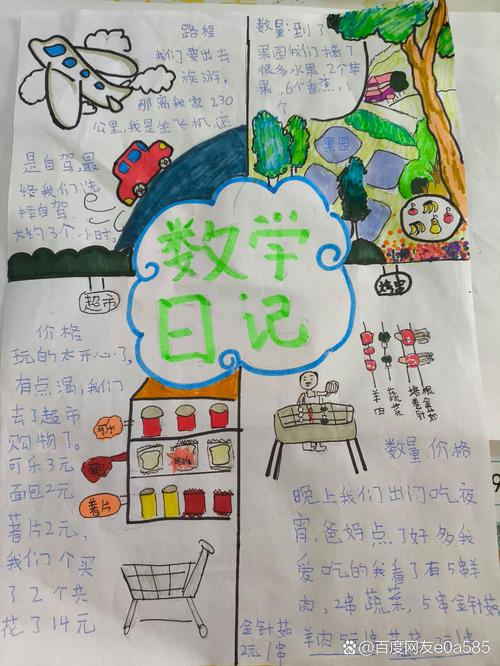 路程
我们要出去
旅游,
那离我家230
公里,我是坐飞机,还
是自驾,最
终我们选
择自驾,
大约3个小时.
数量:到了
果园我们摘了
很多水果,2个苹
果,6个香蕉,1
个
果园
数学
日记
超市
价格
玩的太开心了,
有点渴,我们
去了超市
购物了。
可乐3元
面包2元
薯片2元,
我们个买
了2个共
花了14元
可乐
薯片
烤串
羊肉
蔬菜
烤香针
数量 价格
晚上我们出门吃夜
宵,爸妈点了好多我
爱吃的我看了有5串羊
肉,2串蔬菜,5串金针菇
金针菇
2元/串
羊肉5元/串
百度网友e0a585